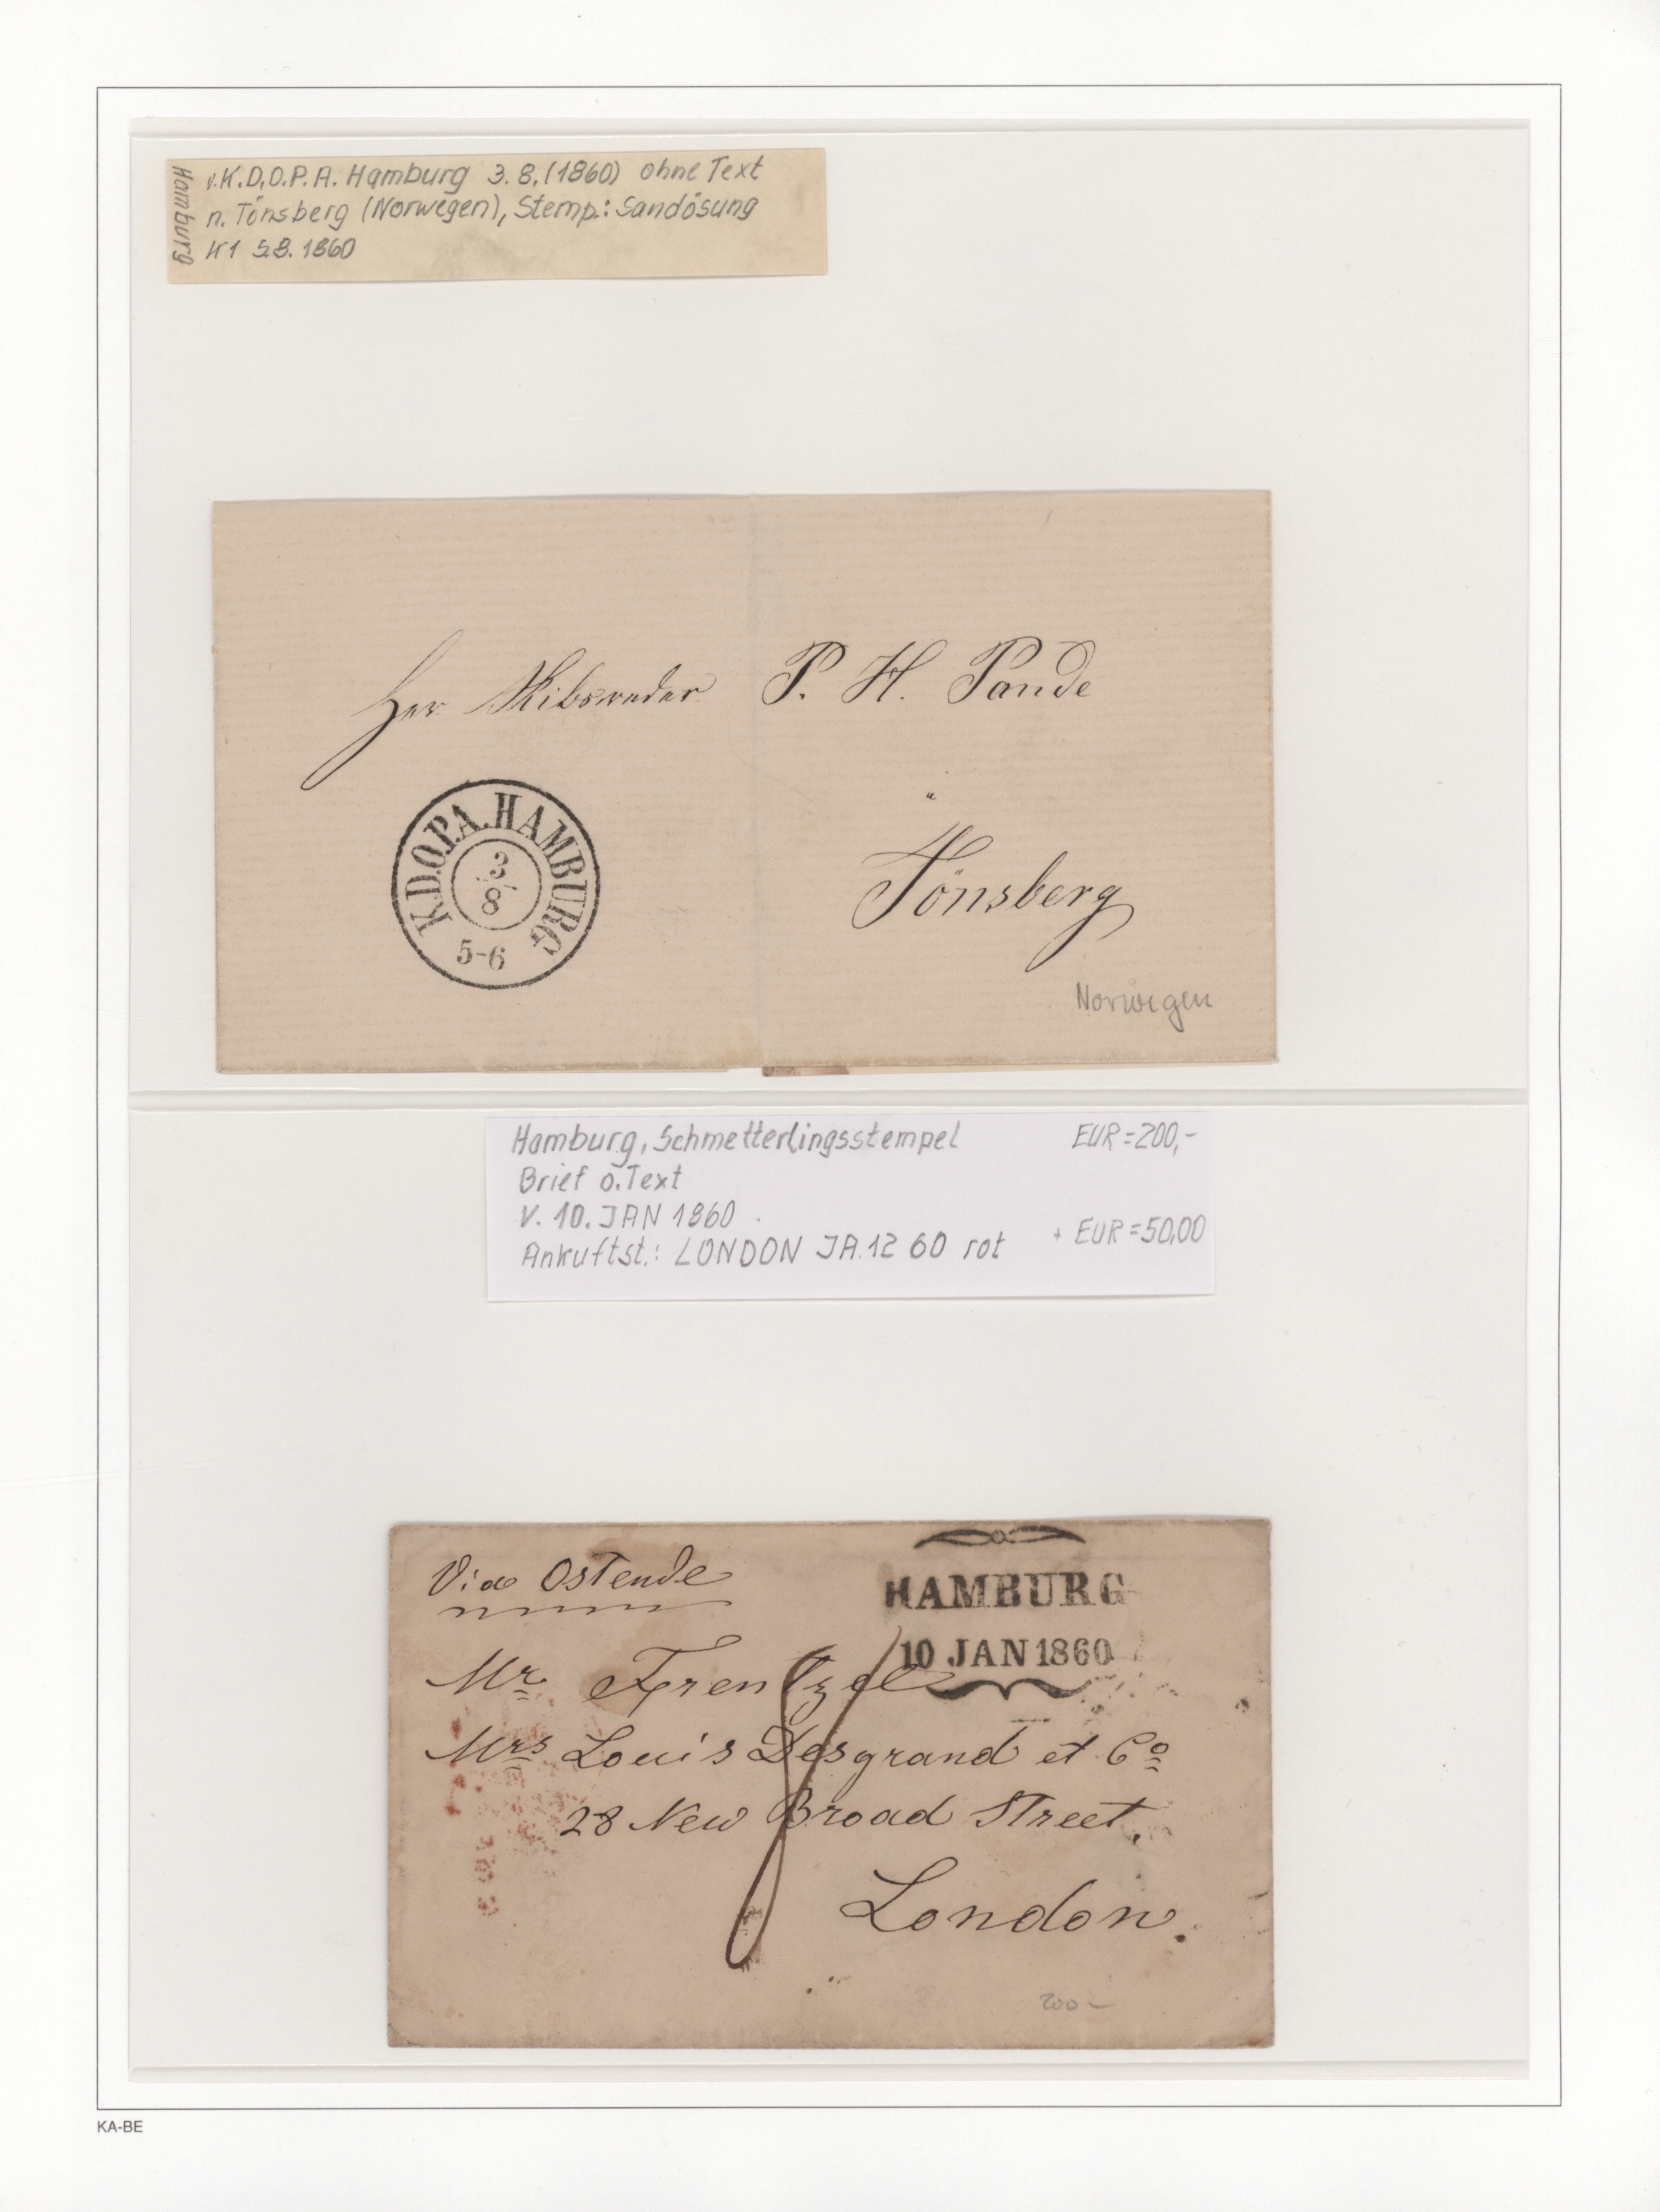 Hamburg
v. K.D.O.P.A. Hamburg 3.8.(1860) ohne Text
n. Tönsberg (Norwegen), Stemp.: Sandösung
K1 5.8. 1860
Herr Skibsreder P. H. Pande
K.D.O.P.A. HAMBURG
3
8
5-6
Tönsberg
Norwegen
Hamburg, Schmetterlingsstempel EUR=200,-
Brief o. Text
V. 10. JAN 1860
Ankuftst.: LONDON JA.12 60 rot + EUR=50,00
Via Ostende
HAMBURG
10 JAN 1860
Mr Frentzel
Mrs Louis Desgrand et Co
28 New Broad Street,
London.
200-
KA-BE